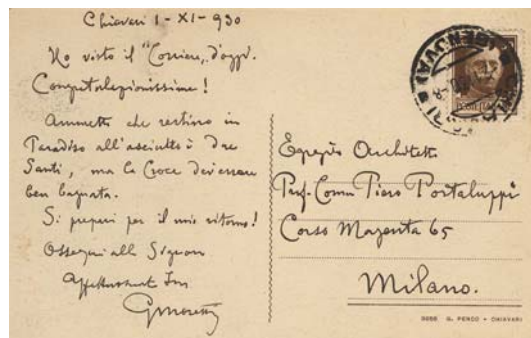 Chiavari 1 - XI - 930
Ho visto il "Corriere" d'oggi.
Congratulazionissime!
Ammetto che restino in
Paradiso all'asciutto i due
Santi, ma la Croce dev'essere
ben bagnata.
Si prepari per il mio ritorno!
Ossequi alla Signora
GMoretti
Egregio Architetto
Prof. Comm Piero Portaluppi
Corso Magenta 65
Milano.
G. PENCO - CHIAVARI